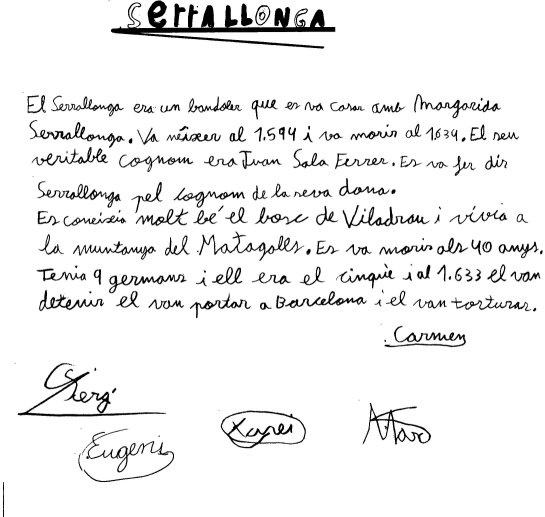 SerraLLONGA
El Serrallonga era un bandoler que es va casar amb Margarida
Serrallonga. Va néixer al 1.594 i va morir al 1634. El seu
veritable cognom era Juan Sala Ferrer. Es va fer dir
Serrallonga pel cognom de la seva dona.
Es coneixia molt bé el bosc de Viladrau i vivia a
la muntanya del Matagalls. Es va morir als 40 anys.
Tenia 9 germans i ell era el cinquè i al 1.633 el van
detenir el van portar a Barcelona i el van torturar.
Carmen
Sergi
Eugeni